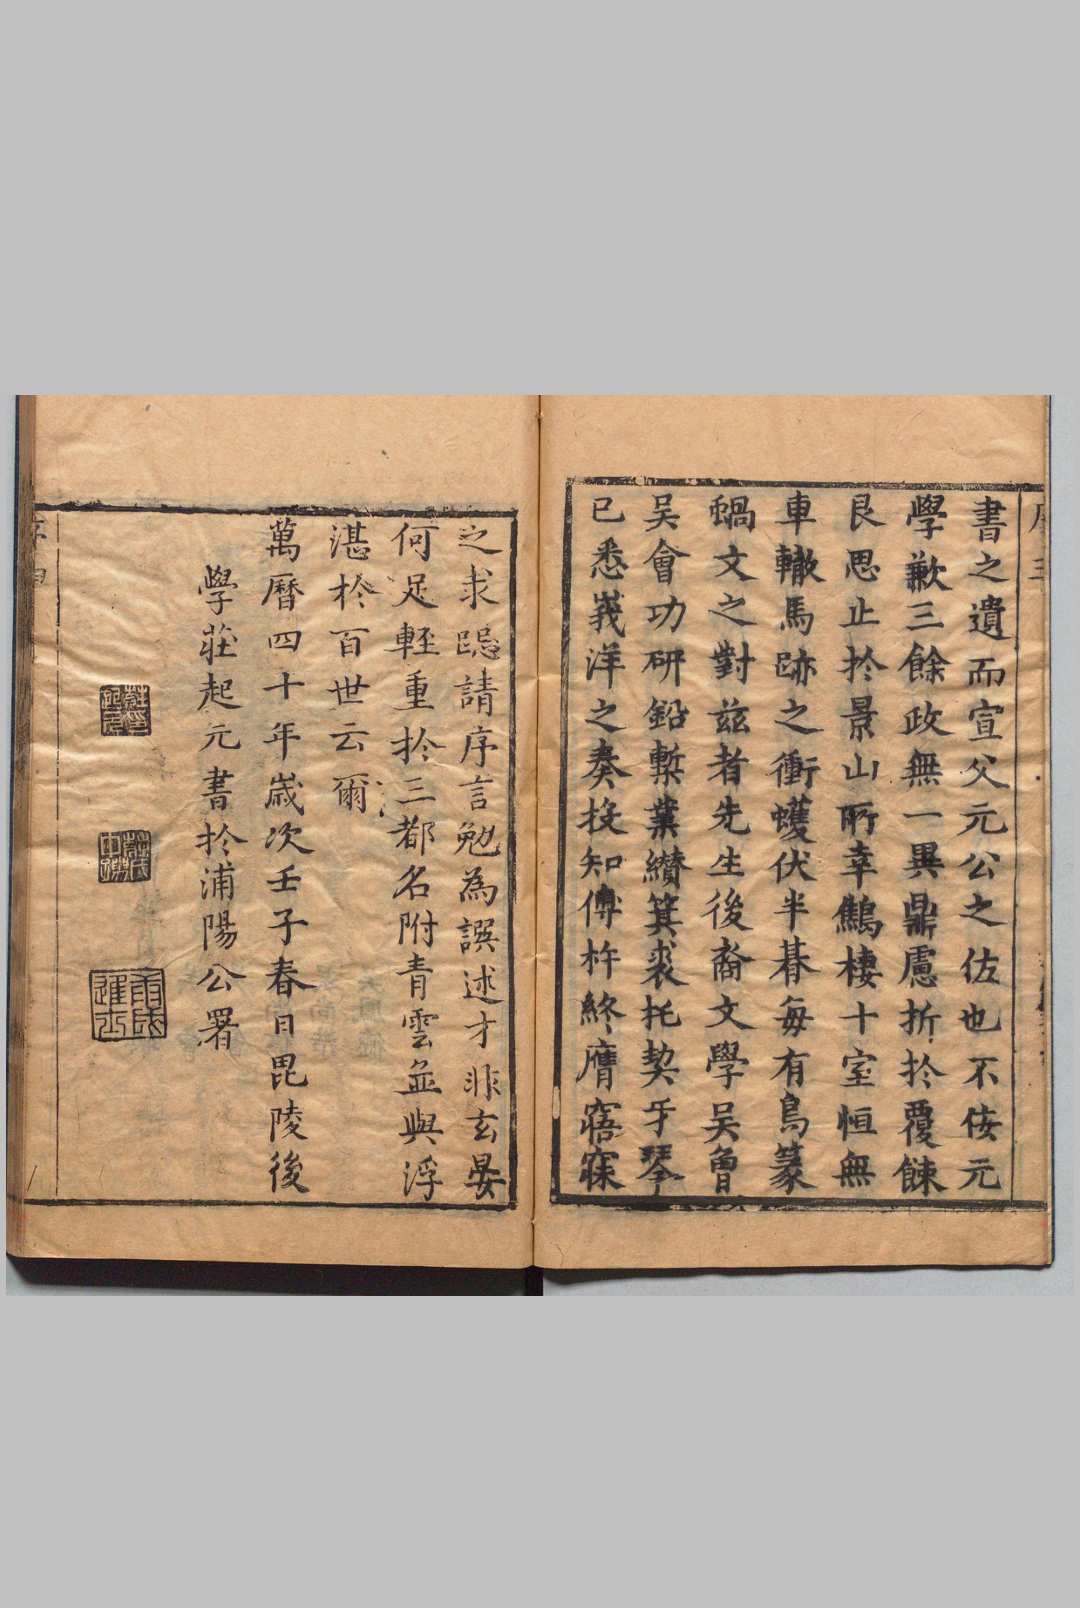 書之遺而宣父元公之佐也不佞元
學歉三餘政無一異鼎慮折於覆餗
艮思止於景山所幸鷦棲十室恒無
車轍馬跡之衝蠖伏半朞每有鳥篆
蝸文之對茲者先生後裔文學吳會
吳會功研鉛槧業纘箕裘托契牙琴
已悉峩洋之奏投知傅杵終膺寤寐
之求跽請序言勉為譔述才非玄晏
何足輕重於三都名附青雲並與浮
湛於百世云爾
萬曆四十年歲次壬子春日毘陵後
學莊起元書於浦陽公署